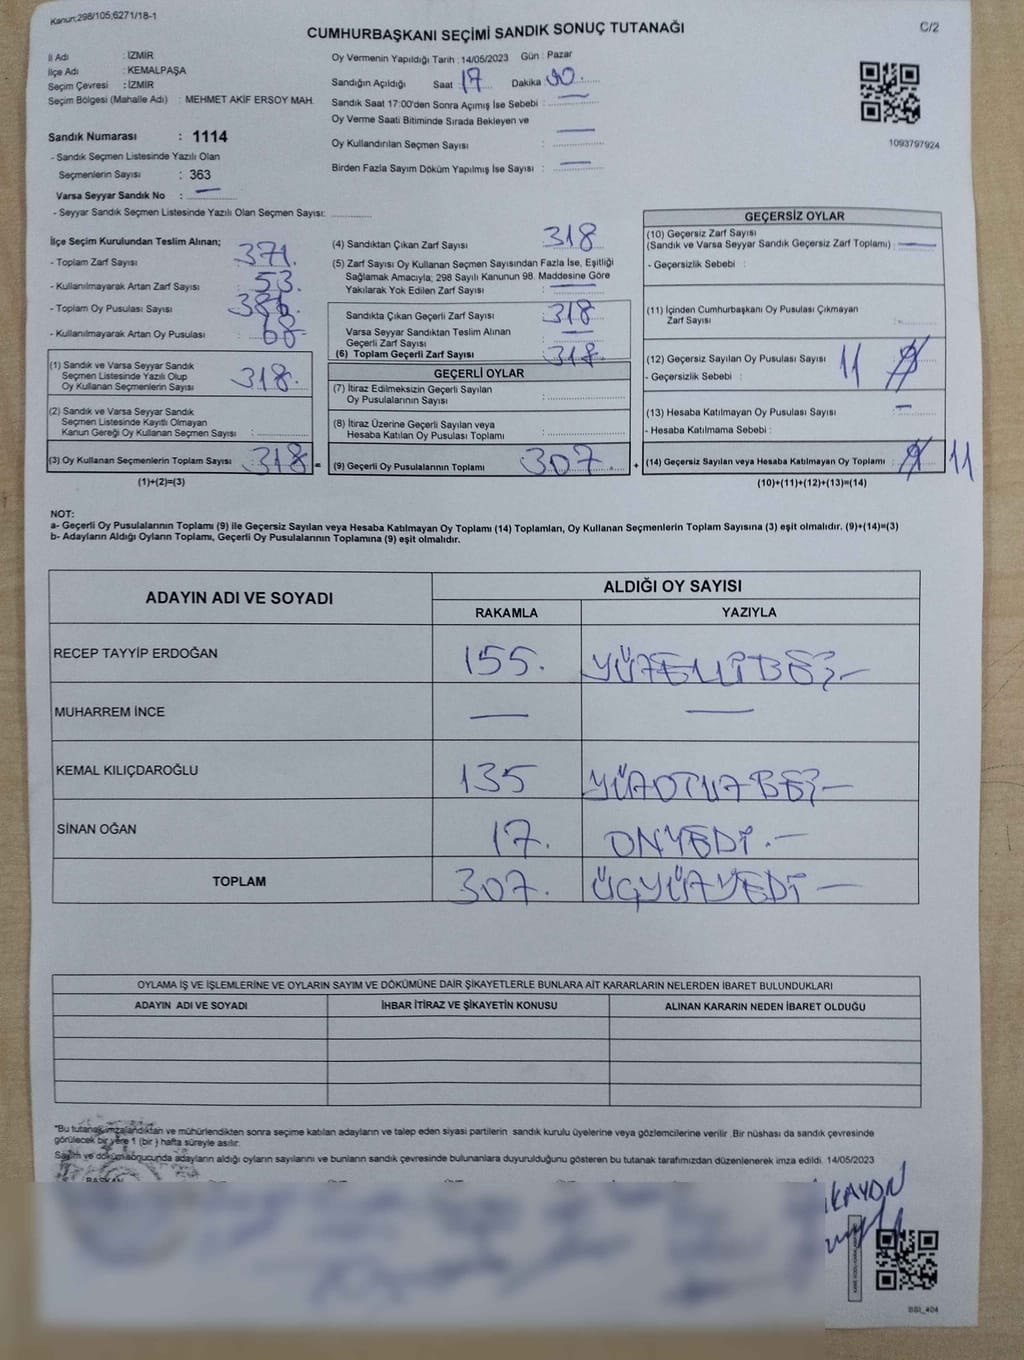 Kanun;298/105;6271/18-1
CUMHURBAŞKANI SEÇİMİ SANDIK SONUÇ TUTANAĞI
C/2
İl Adı : İZMİR
İlçe Adı : KEMALPAŞA
Seçim Çevresi : İZMİR
Seçim Bölgesi (Mahalle Adı) : MEHMET AKİF ERSOY MAH.
Sandık Numarası : 1114
- Sandık Seçmen Listesinde Yazılı Olan
Seçmenlerin Sayısı : 363
Varsa Seyyar Sandık No : —
- Seyyar Sandık Seçmen Listesinde Yazılı Olan Seçmen Sayısı:
Oy Vermenin Yapıldığı Tarih : 14/05/2023 Gün : Pazar
Sandığın Açıldığı Saat : 17 Dakika :
Sandık Saat 17:00'den Sonra Açımış İse Sebebi : —
Oy Verme Saati Bitiminde Sırada Bekleyen ve
Oy Kullandırılan Seçmen Sayısı : —
Birden Fazla Sayım Döküm Yapılmış İse Sayısı : —
1093797924
İlçe Seçim Kurulundan Teslim Alınan;
- Toplam Zarf Sayısı 371.
- Kullanılmayarak Artan Zarf Sayısı 53.
- Toplam Oy Pusulası Sayısı 386.
- Kullanılmayarak Artan Oy Pusulası 68
(1) Sandık ve Varsa Seyyar Sandık
Seçmen Listesinde Yazılı Olup
Oy Kullanan Seçmenlerin Sayısı 318.
(2) Sandık ve Varsa Seyyar Sandık
Seçmen Listesinde Kayıtlı Olmayan
Kanun Gereği Oy Kullanan Seçmen Sayısı :
(3) Oy Kullanan Seçmenlerin Toplam Sayısı : 318 =
(1)+(2)=(3)
(4) Sandıktan Çıkan Zarf Sayısı 318
(5) Zarf Sayısı Oy Kullanan Seçmen Sayısından Fazla İse, Eşitliği
Sağlamak Amacıyla; 298 Sayılı Kanunun 98. Maddesine Göre
Yakılarak Yok Edilen Zarf Sayısı : —
Sandıkta Çıkan Geçerli Zarf Sayısı : 318
Varsa Seyyar Sandıktan Teslim Alınan
Geçerli Zarf Sayısı : —
(6) Toplam Geçerli Zarf Sayısı 318.
GEÇERLİ OYLAR
(7) İtiraz Edilmeksizin Geçerli Sayılan
Oy Pusulalarının Sayısı :
(8) İtiraz Üzerine Geçerli Sayılan veya
Hesaba Katılan Oy Pusulası Toplamı :
(9) Geçerli Oy Pusulalarının Toplamı 307 +
GEÇERSİZ OYLAR
(10) Geçersiz Zarf Sayısı
(Sandık ve Varsa Seyyar Sandık Geçersiz Zarf Toplamı) : —
- Geçersizlik Sebebi :
(11) İçinden Cumhurbaşkanı Oy Pusulası Çıkmayan
Zarf Sayısı :
(12) Geçersiz Sayılan Oy Pusulası Sayısı 11
- Geçersizlik Sebebi :
(13) Hesaba Katılmayan Oy Pusulası Sayısı : —
- Hesaba Katılmama Sebebi :
(14) Geçersiz Sayılan veya Hesaba Katılmayan Oy Toplamı : 11
(10)+(11)+(12)+(13)=(14)
NOT:
a- Geçerli Oy Pusulalarının Toplamı (9) ile Geçersiz Sayılan veya Hesaba Katılmayan Oy Toplamı (14) Toplamları, Oy Kullanan Seçmenlerin Toplam Sayısına (3) eşit olmalıdır. (9)+(14)=(3)
b- Adayların Aldığı Oyların Toplamı, Geçerli Oy Pusulalarının Toplamına (9) eşit olmalıdır.
ADAYIN ADI VE SOYADI ALDIĞI OY SAYISI
RAKAMLA YAZIYLA
RECEP TAYYİP ERDOĞAN 155. YÜZELLİBEŞ —
MUHARREM İNCE — —
KEMAL KILIÇDAROĞLU 135 YÜZOTUZBEŞ —
SİNAN OĞAN 17. ONYEDİ. —
TOPLAM 307. ÜÇYÜZYEDİ —
OYLAMA İŞ VE İŞLEMLERİNE VE OYLARIN SAYIM VE DÖKÜMÜNE DAİR ŞİKAYETLERLE BUNLARA AİT KARARLARIN NELERDEN İBARET BULUNDUKLARI
ADAYIN ADI VE SOYADI İHBAR İTİRAZ VE ŞİKAYETİN KONUSU ALINAN KARARIN NEDEN İBARET OLDUĞU
"Bu tutanak imzalandıktan ve mühürlendikten sonra seçime katılan adayların ve talep eden siyasi partilerin sandık kurulu üyelerine veya gözlemcilerine verilir .Bir nüshası da sandık çevresinde
görülecek bir yere 1 (bir ) hafta süreyle asılır.
Sayım ve döküm sonucunda adayların aldığı oyların sayılarını ve bunların sandık çevresinde bulunanlara duyurulduğunu gösteren bu tutanak tarafımızdan düzenlenerek imza edildi. 14/05/2023
BAŞKAN
BSI_404